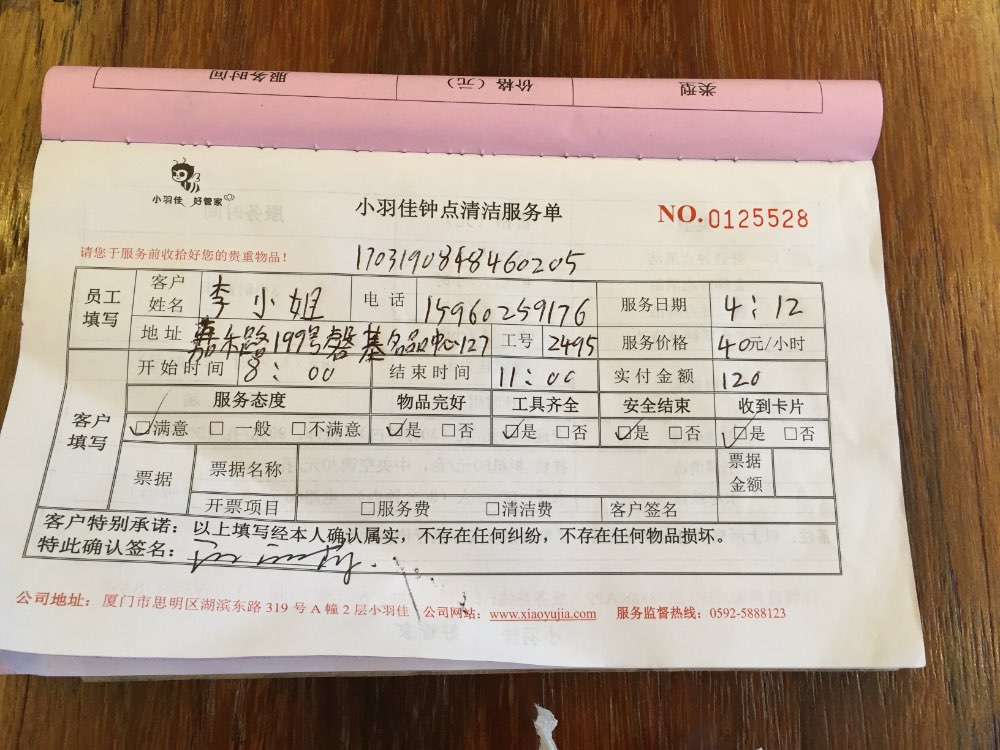 服务时间 价格（元） 类型
小羽佳 好管家
小羽佳钟点清洁服务单
NO.0125528
请您于服务前收拾好您的贵重物品！
1703190848460205
员工填写 客户姓名 李小姐 电话 15960259176 服务日期 4：12
地址 嘉禾路199号磬基名品中心127 工号 2495 服务价格 40元/小时
客户填写 开始时间 8：00 结束时间 11：00 实付金额 120
服务态度 物品完好 工具齐全 安全结束 收到卡片
☑满意 □一般 □不满意 ☑是 □否 ☑是 □否 ☑是 □否 ☑是 □否
票据 票据名称 票据金额
开票项目 □服务费 □清洁费 客户签名
客户特别承诺：以上填写经本人确认属实，不存在任何纠纷，不存在任何物品损坏。
特此确认签名：
公司地址：厦门市思明区湖滨东路 319 号 A 幢 2 层小羽佳 公司网站：www.xiaoyujia.com 服务监督热线：0592-5888123